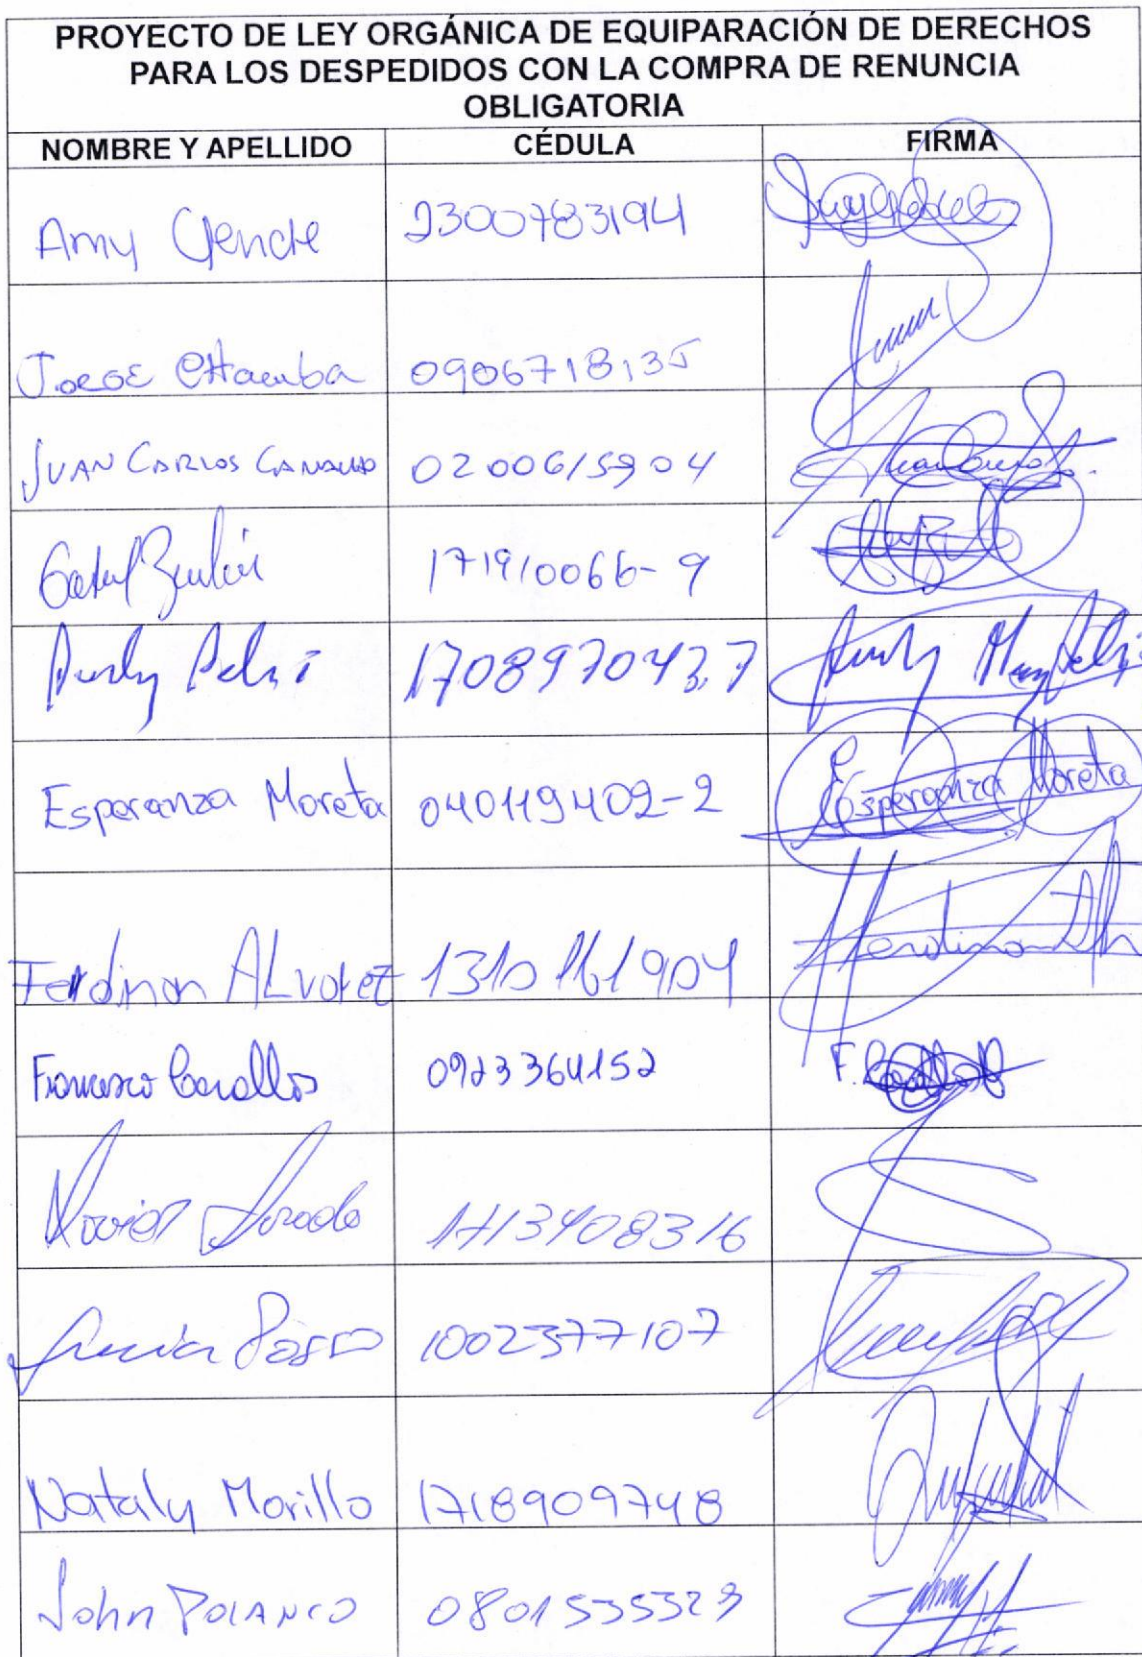 PROYECTO DE LEY ORGÁNICA DE EQUIPARACIÓN DE DERECHOS
PARA LOS DESPEDIDOS CON LA COMPRA DE RENUNCIA
OBLIGATORIA
NOMBRE Y APELLIDO CÉDULA FIRMA
Amy 2300783194
Jorge Chamba 0906718135
JUAN CARLOS 0200615904
171910066-9
1708970437
Esperanza Moreta 040119402-2 Esperanza Moreta
Ferdinan ALvarez 1310161904
Francisco Cevallos 0923364152
1713408316
1002377107
Nataly Morillo 1718909748
John POLANCO 0801535323